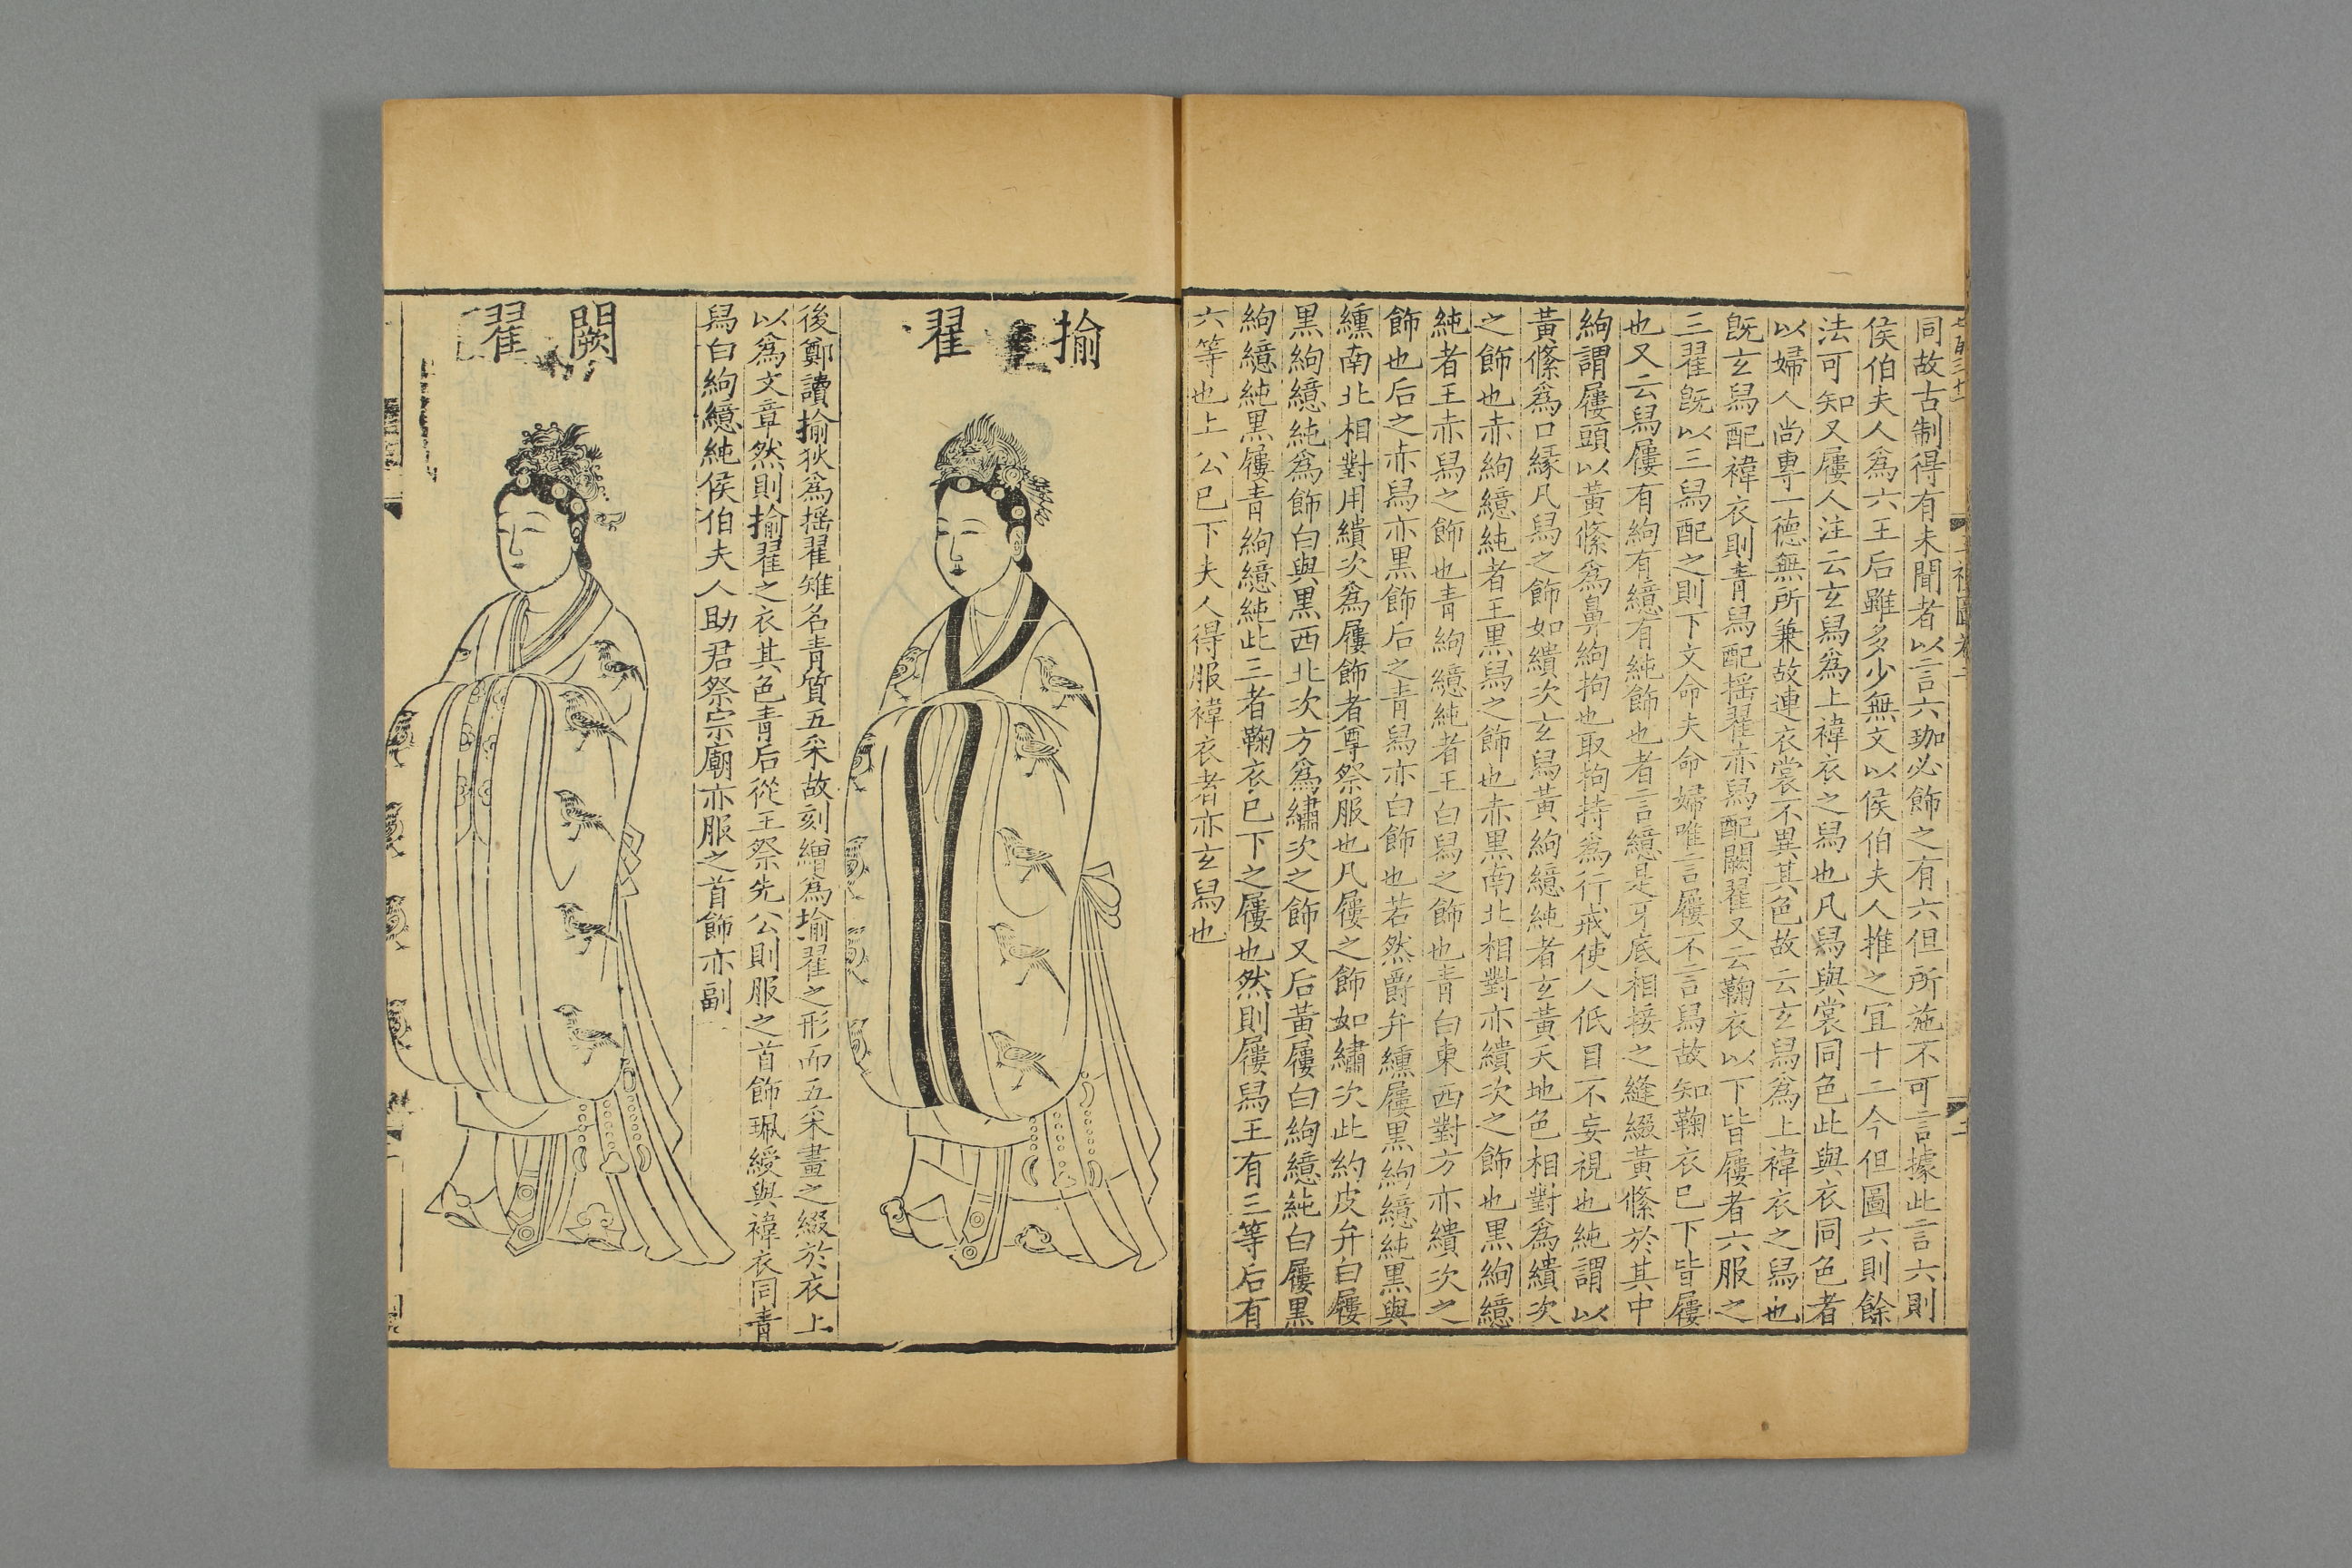 同故古制得有未聞者以言六珈必飾之有六但所施不可言據此言六則
侯伯夫人爲六王后雖多少無文以侯伯夫人推之宜十二今但圖六則餘
法可知又屨人注云玄舄爲上褘衣之舄也凡舄與裳同色此與衣同色者
以婦人尚專一德無所兼故連衣裳不異其色故云玄舄爲上褘衣之舄也
旣玄舄配褘衣則青舄配揺翟赤舄配闕翟又云鞠衣以下皆屨者六服之
三翟旣以三舄配之則下文命夫命婦唯言屨不言舄故知鞠衣已下皆屨
也又云舄屨有絇有繶有純飾也者言繶是牙底相接之縫綴黃絛於其中
絇謂屨頭以黃絛爲鼻絇拘也取拘持爲行戒使人低目不妄視也純謂以
黃絛爲口緣凡舄之飾如繢次玄舄黃絇繶純者玄黃天地色相對爲繢次
之飾也赤絇繶純者王黑舄之飾也赤黑南北相對亦繢次之飾也黑絇繶
純者王赤舄之飾也青絇繶純者王白舄之飾也青白東西對方亦繢次之
飾也后之赤舄亦黑飾后之青舄亦白飾也若然爵弁纁屨黑絇繶純黑與
纁南北相對用繢次爲屨飾者尊祭服也凡屨之飾如繡次此約皮弁白屨
黑絇繶純爲飾白與黑西北次方爲繡次之飾又后黃屨白絇繶純白屨黑
絇繶純黑屨青絇繶純此三者鞠衣已下之屨也然則屨舄王有三等后有
六等也上公已下夫人得服褘衣者亦玄舄也
揄翟
後鄭讀揄狄爲揺翟雉名青質五采故刻繒爲揄翟之形而五采畫之綴於衣上
以爲文章然則揄翟之衣其色青后從王祭先公則服之首飾珮綬與褘衣同青
舄白絇繶純侯伯夫人助君祭宗廟亦服之首飾亦副
闕翟